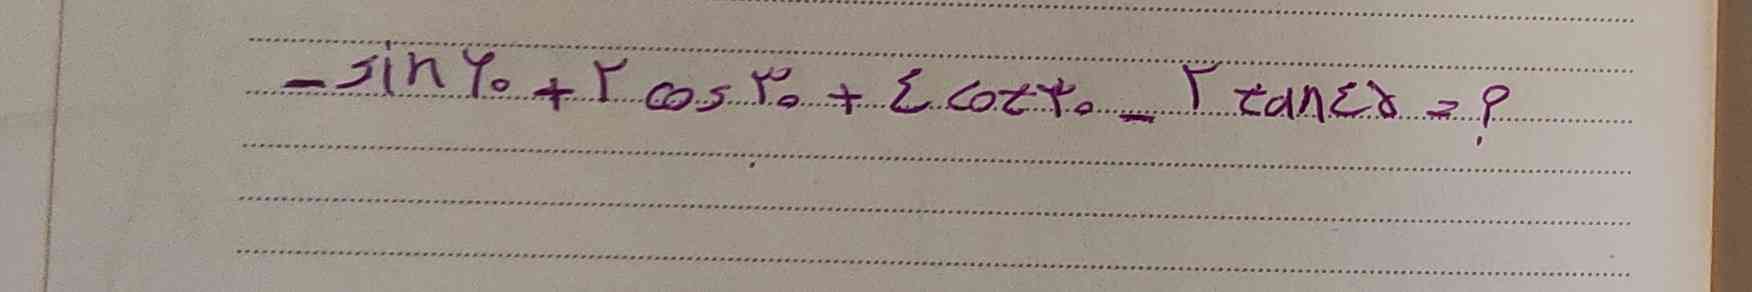 - sin ۶۰ + ۲ cos ۳۰ + ٤ cot ۶۰ - ۲ tan ٤۵ = ?